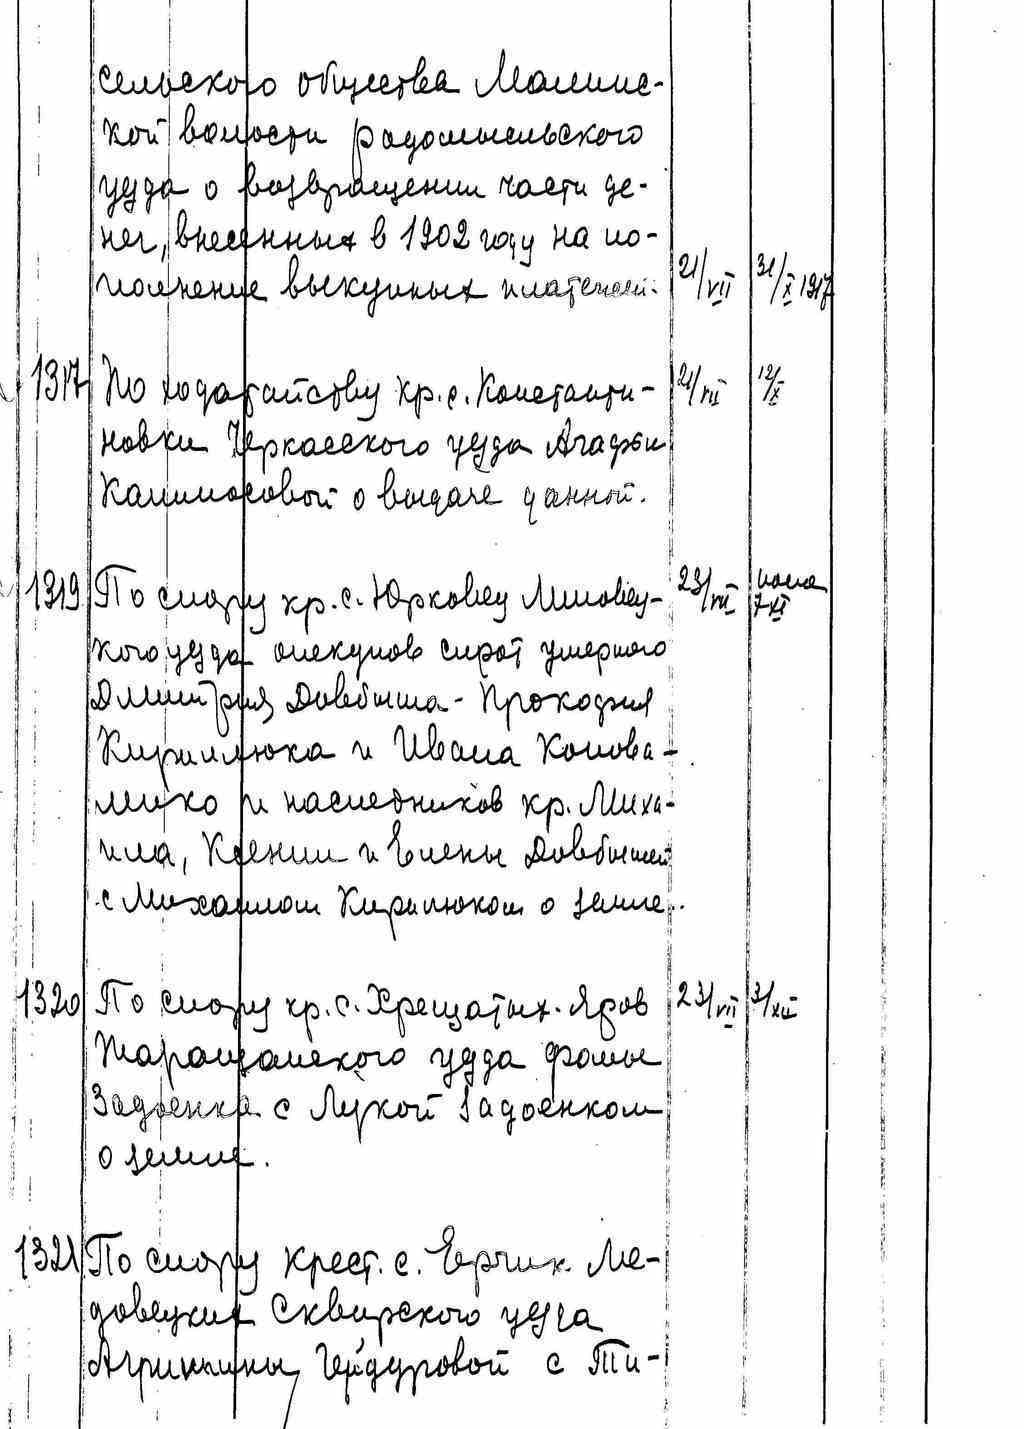 сельского общества Малинс-
кой волости радомысльского
уезда о возвращении части де-
нег, внесенных в 1902 году на по-
полнение выкупных платежей. 21/VII 31/X 1917
1317 По ходатайству кр. с. Константи- 21/VII 12/X
новки Черкасского уезда Агафьи
Калимосовой о выдаче данной.
1319 По спору кр. с. Юрковец Липовец- 23/VII 7 XI
кого уезда опекунов сирот умершего
Дмитрия Довбыша - Прокофия
Кирилюка и Ивана Конова-
лико и наследников кр. Миха-
ила, Ксении и Елены Довбышей
с Михаилом Кирилюком о земле.
1320 По спору кр. с. Хрещатых-Яров 23/VII 3/XII
Таращанского уезда Фомы
Задоенка с Лукой Задоенком
о земле.
1321 По спору крест. с. Ерчик. Ме-
довецких Сквирского уезда
Агрипины Гейдуровой с Ти-